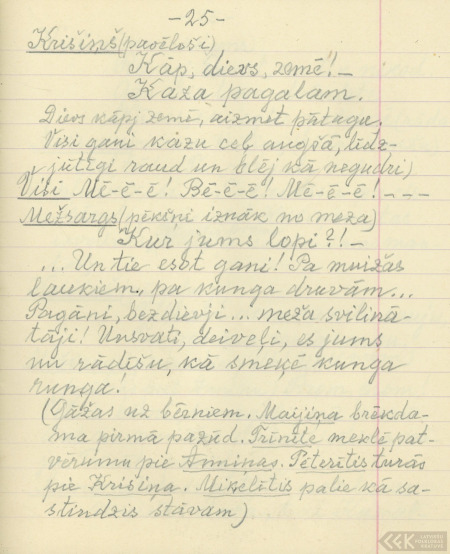 -25-
Krišiņš (pavēloši)
Kāp, dievs, zemē!! -
Kaza pagalam.
Dievs kāpj zemē, aizmet pātagu.
Visi gani kazu ceļ augšā, līdz-
jūtīgi raud un blēj kā negudri)
Visi Mē-ē-ē! Bē-ē-ē! Mē-ē-ē! - - -
Mežsargs (pēkšņi iznāk no meža)
Kur jums lopi?! -
... Un tie esot gani! Pa muižas
laukiem, pa kunga druvām...
Pagāni, bezdievji... meža svilinā-
tāji! Unsvāti, deiveļi, es jums
nu rādīšu, kā smeķē kunga
runga!
(Gāžas uz bērniem. Maijiņa brēkda-
ma pirmā pazūd. Trīnīte meklē pat-
vērumu pie Anniņas. Pēterītis turas
pie Krišiņa. Miķelītis paliek kā sa-
stindzis stāvam)
LATVIEŠU
FOLKLORAS
KRĀTUVE